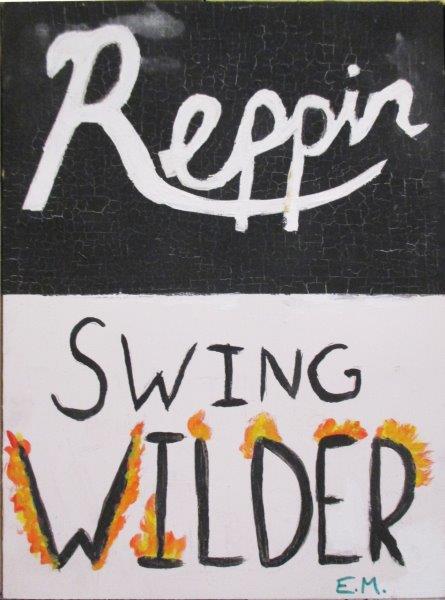 Reppin
SWING
WILDER
E.M.